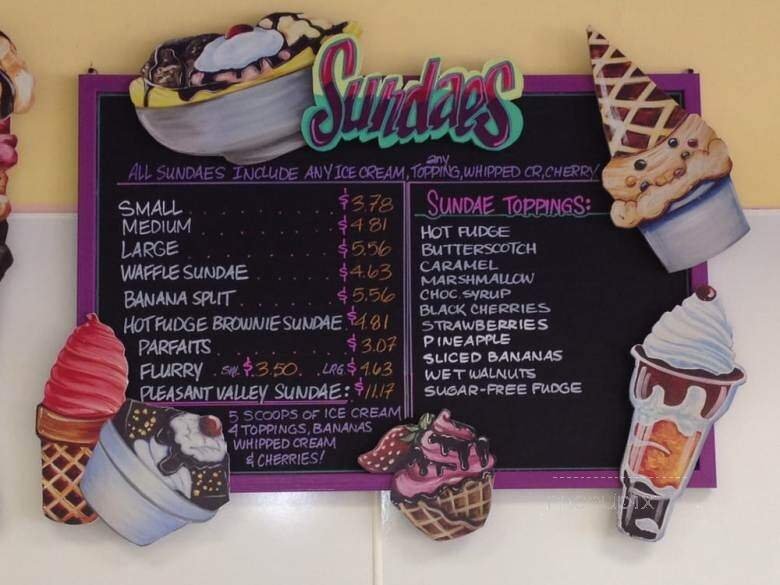 Sundaes
ALL SUNDAES INCLUDE ANY ICE CREAM, any TOPPING, WHIPPED CR, CHERRY
SMALL . . . . . . . . . $3.78
MEDIUM . . . . . . . . $4.81
LARGE . . . . . . . . . $5.56
WAFFLE SUNDAE . . . . $4.63
BANANA SPLIT . . . . . $5.56
HOT FUDGE BROWNIE SUNDAE $4.81
PARFAITS . . . . . . $3.07
FLURRY . . SM. $3.50. LRG. $4.63
PLEASANT VALLEY SUNDAE: $11.17
5 SCOOPS OF ICE CREAM
4 TOPPINGS, BANANAS
WHIPPED CREAM
& CHERRIES!
SUNDAE TOPPINGS:
HOT FUDGE
BUTTERSCOTCH
CARAMEL
MARSHMALLOW
CHOC. SYRUP
BLACK CHERRIES
STRAWBERRIES
PINEAPPLE
SLICED BANANAS
WET WALNUTS
SUGAR-FREE FUDGE